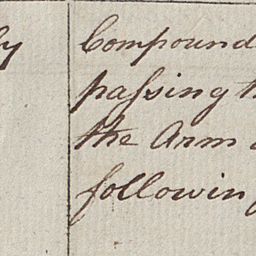 Compound
paſsing th
the Arm
following